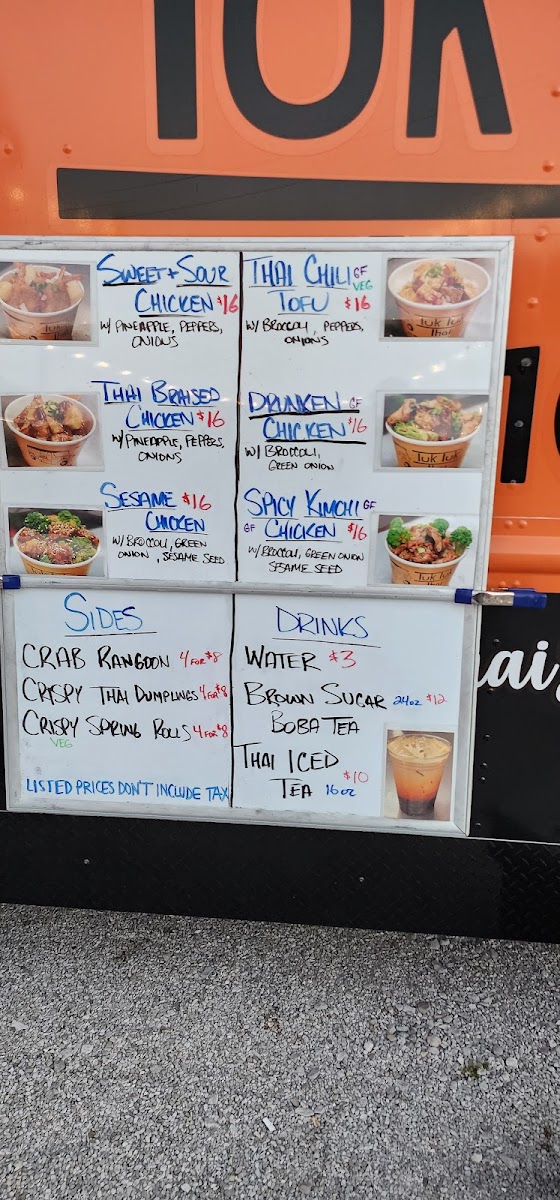 TUK
SWEET + SOUR
CHICKEN $16
W/ PINEAPPLE, PEPPERS,
ONIONS
THAI BRAISED
CHICKEN $16
W/ PINEAPPLE, PEPPERS,
ONIONS
SESAME $16
CHICKEN
W/ BROCCOLI, GREEN
ONION, SESAME SEED
THAI CHILI GF
VEG
TOFU $16
W/ BROCCOLI, PEPPERS,
ONIONS
Tuk Tuk
Thai
DRUNKEN GF
CHICKEN $16
W/ BROCCOLI,
GREEN ONION
Tuk Tuk
SPICY KIMCHI GF
GF CHICKEN $16
W/ BROCCOLI, GREEN ONION
SESAME SEED
Tuk Tuk
SIDES
CRAB RANGOON 4 FOR $8
CRISPY THAI DUMPLINGS 4 FOR $8
CRISPY SPRING ROLLS 4 FOR $8
VEG
LISTED PRICES DON'T INCLUDE TAX
DRINKS
WATER $3
BROWN SUGAR 24oz $12
BOBA TEA
THAI ICED
$10
TEA 16oz